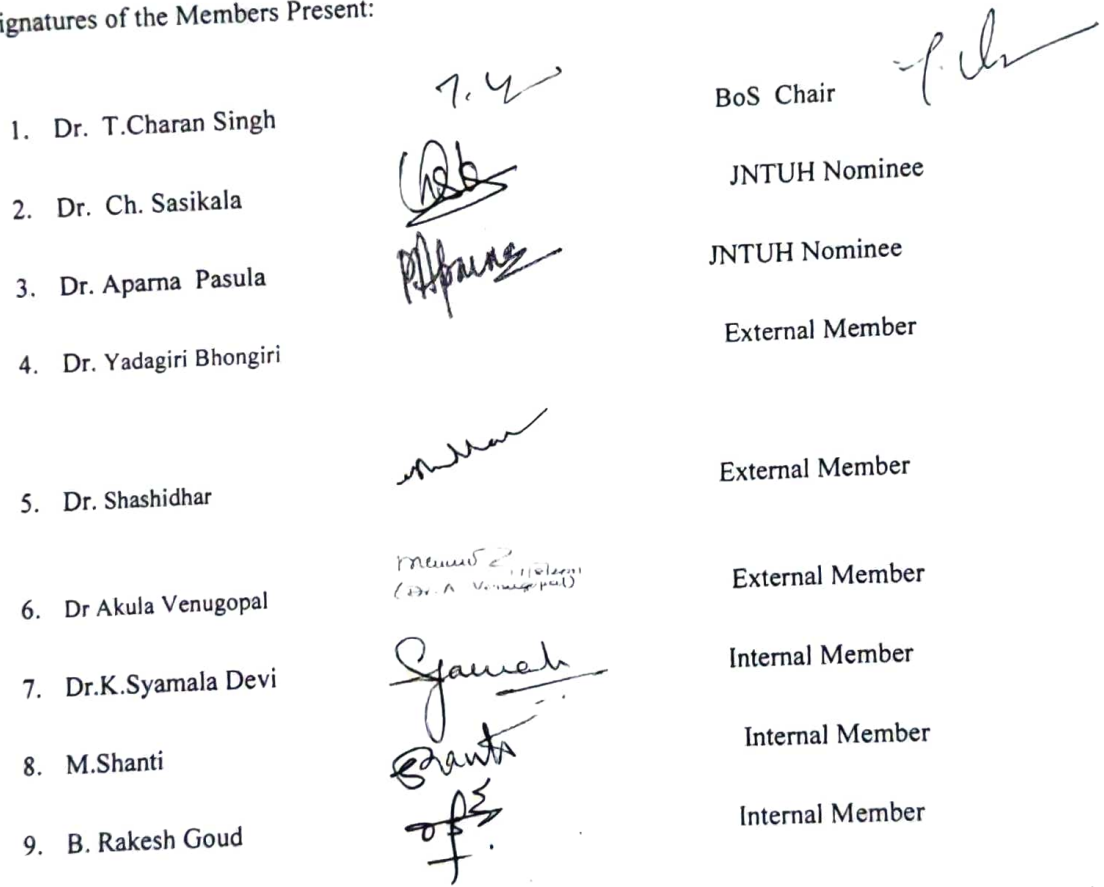 ignatures of the Members Present:
1. Dr. T.Charan Singh BoS Chair
2. Dr. Ch. Sasikala JNTUH Nominee
3. Dr. Aparna Pasula PAparna JNTUH Nominee
4. Dr. Yadagiri Bhongiri External Member
5. Dr. Shashidhar External Member
6. Dr Akula Venugopal (Dr. A Venugopal) External Member
7. Dr.K.Syamala Devi External Member
7. Dr.K.Syamala Devi Internal Member
8. M.Shanti Shanti Internal Member
9. B. Rakesh Goud Internal Member